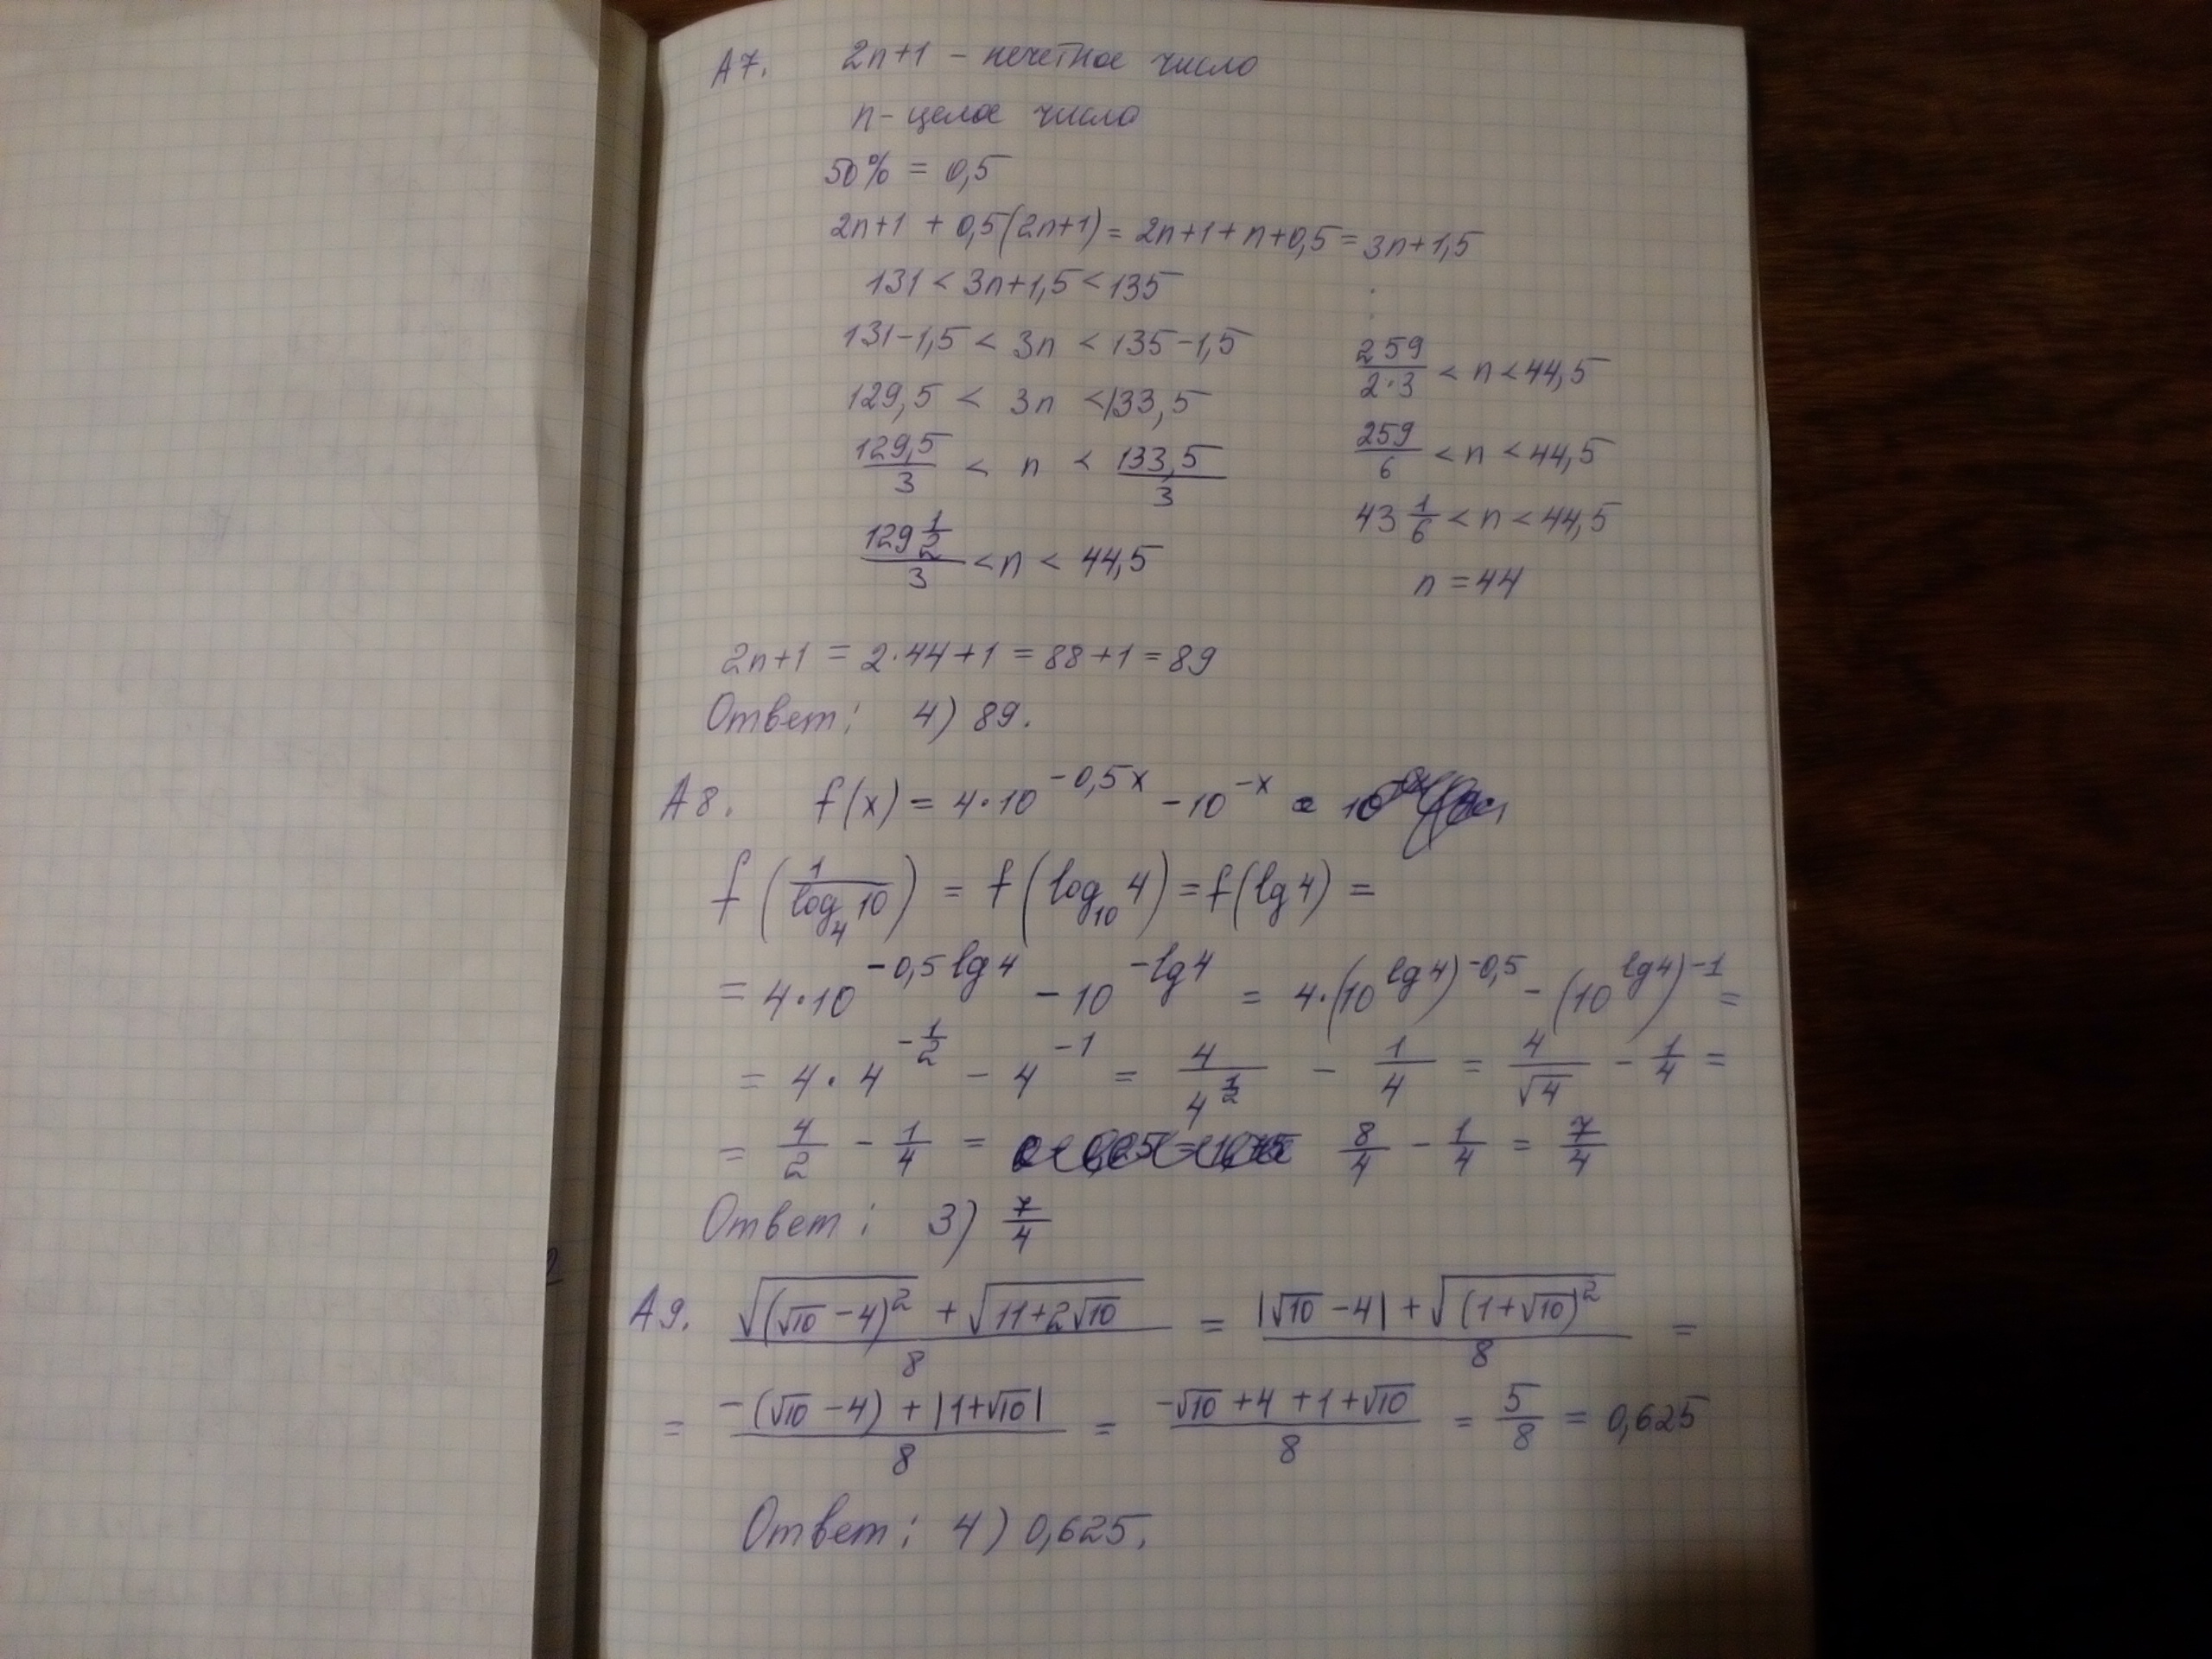 А7. 2n+1 – нечетное число
n – целое число
50% = 0,5
2n+1 + 0,5(2n+1) = 2n+1+n+0,5 = 3n+1,5
131 < 3n+1,5 < 135
131-1,5 < 3n < 135-1,5
129,5 < 3n < 133,5
129,5/3 < n < 133,5/3
129 1/2 / 3 < n < 44,5
259/(2·3) < n < 44,5
259/6 < n < 44,5
43 1/6 < n < 44,5
n = 44
2n+1 = 2·44+1 = 88+1 = 89
Ответ: 4) 89.
А8. f(x) = 4·10^(-0,5x) - 10^(-x)
f(1/log₄10) = f(log₁₀4) = f(lg4) =
= 4·10^(-0,5lg4) - 10^(-lg4) = 4·(10^(lg4))^(-0,5) - (10^(lg4))^(-1) =
= 4·4^(-1/2) - 4^(-1) = 4/4^(1/2) - 1/4 = 4/√4 - 1/4 =
= 4/2 - 1/4 = 8/4 - 1/4 = 7/4
Ответ: 3) 7/4
А9. (√((√10-4)²) + √(11+2√10))/8 = (|√10-4| + √((1+√10)²))/8 =
= (-(√10-4) + |1+√10|)/8 = (-√10+4+1+√10)/8 = 5/8 = 0,625
Ответ: 4) 0,625.